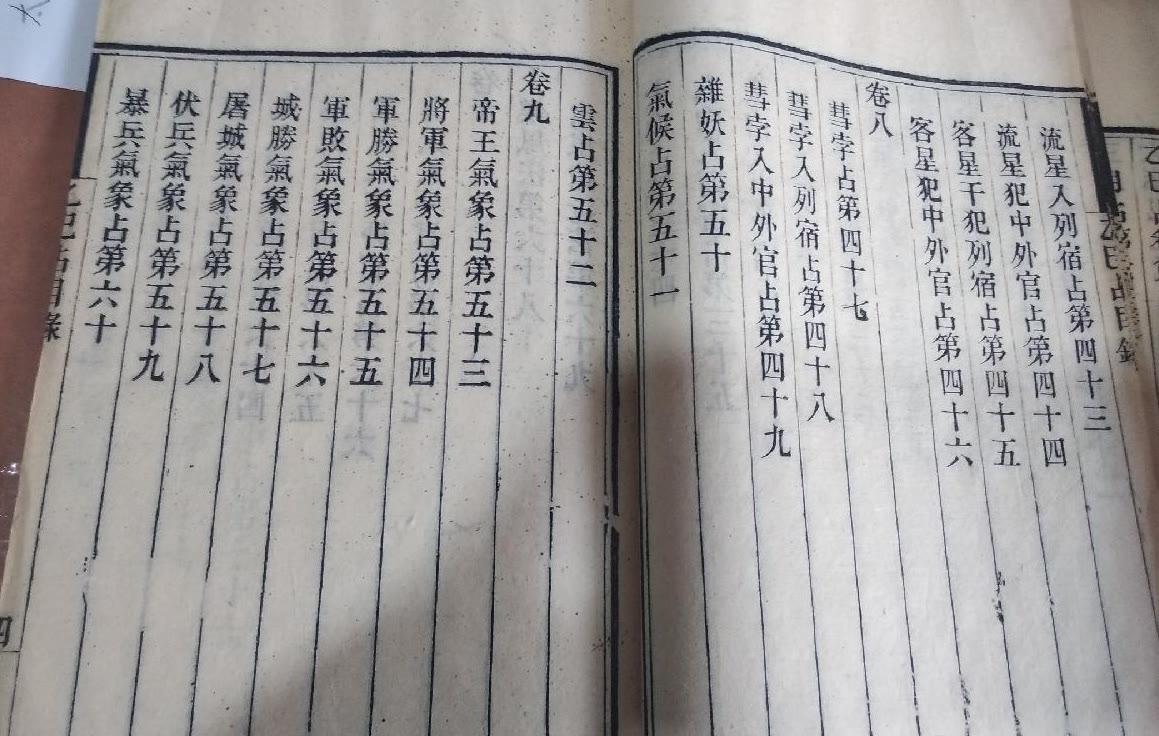 流星入列宿占第四十三
流星犯中外官占第四十四
流星干犯列宿占第四十五
客星犯中外官占第四十六
卷八
彗孛占第四十七
彗孛入列宿占第四十八
彗孛入中外官占第四十九
雜妖占第五十
氣候占第五十一
雲占第五十二
卷九
帝王氣象占第五十三
將軍氣象占第五十四
軍勝氣象占第五十五
軍敗氣象占第五十六
城勝氣象占第五十七
屠城氣象占第五十八
伏兵氣象占第五十九
暴兵氣象占第六十
乙巳占目錄
四